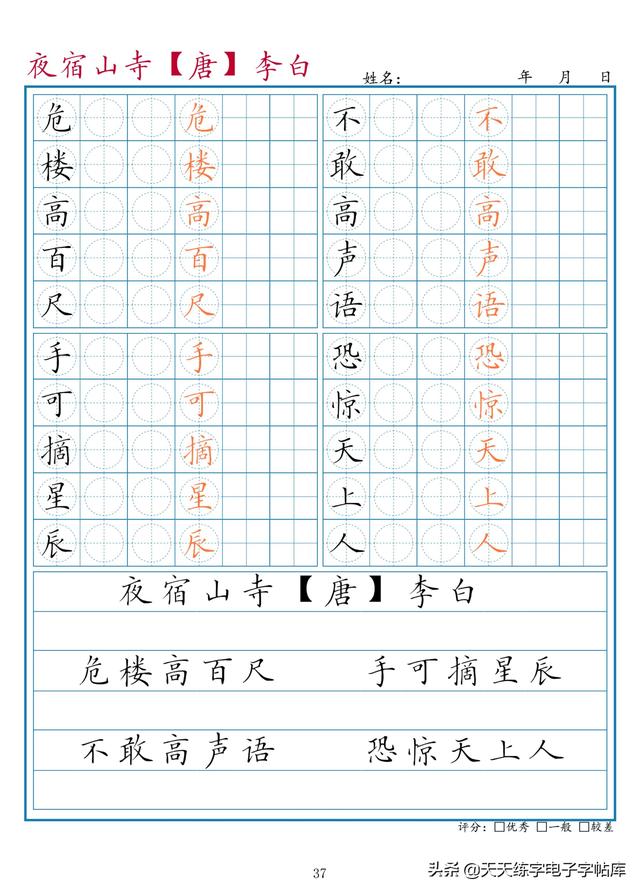 夜宿山寺【唐】李白
姓名： 年 月 日
危 危 不 不
楼 楼 敢 敢
高 高 高 高
百 百 声 声
尺 尺 语 语
手 手 恐 恐
可 可 惊 惊
摘 摘 天 天
星 星 上 上
辰 辰 人 人
夜宿山寺【唐】李白
危楼高百尺 手可摘星辰
不敢高声语 恐惊天上人
评分：□优秀 □一般 □较差
37
头条 @天天练字电子字帖库